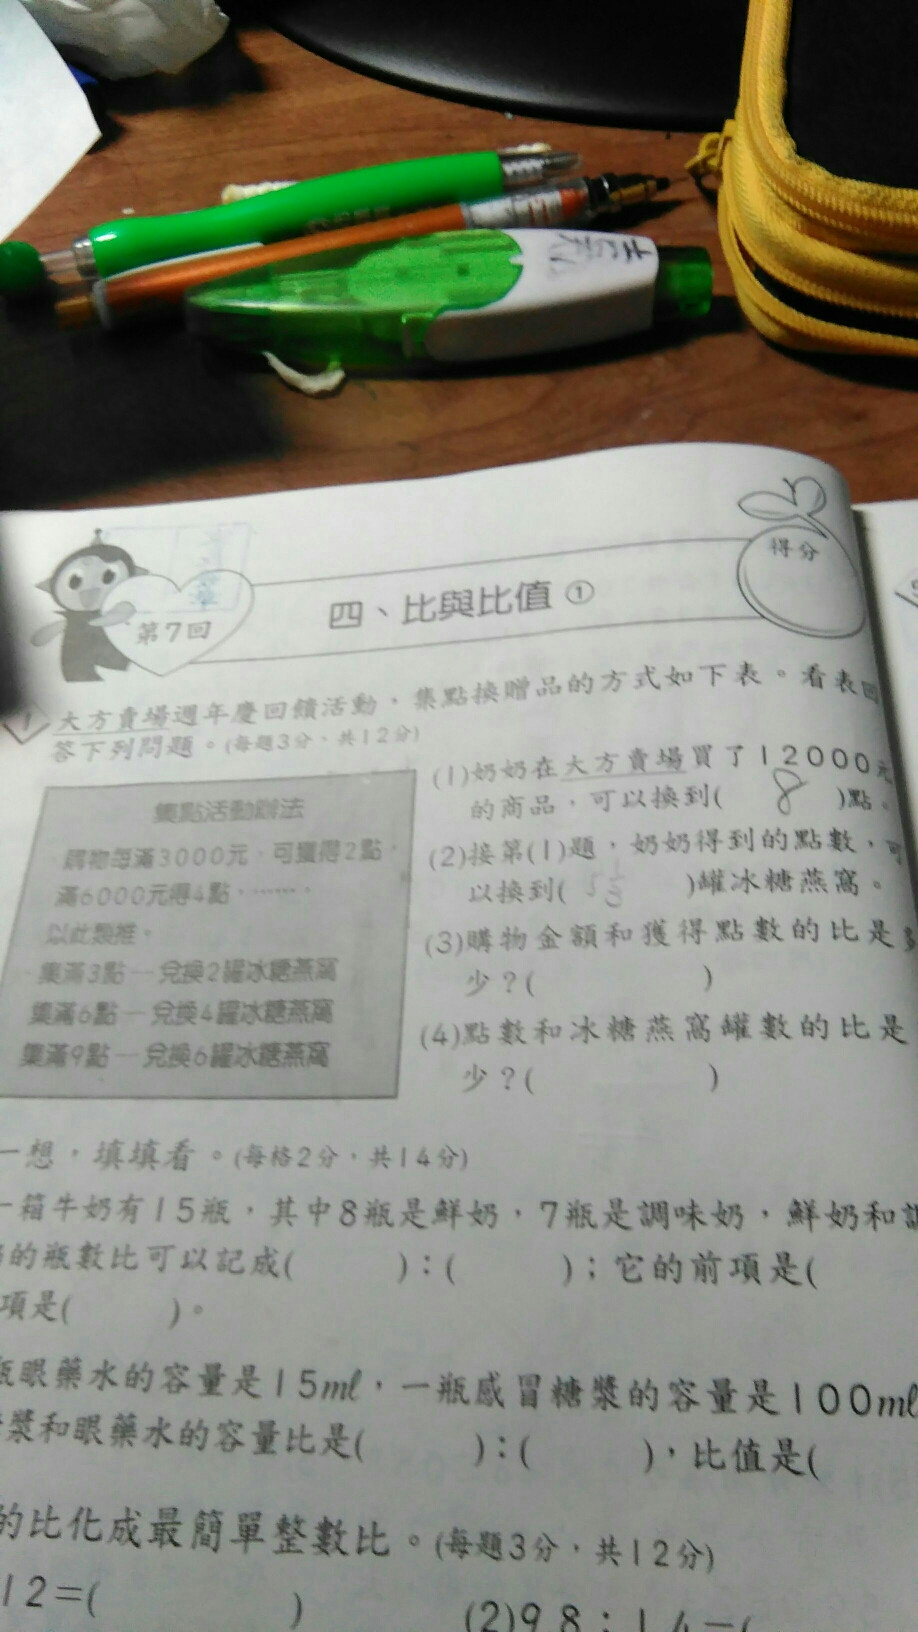 得分
第7回
四、比與比值 ①
1 大方賣場週年慶回饋活動，集點換贈品的方式如下表。看表回
答下列問題。(每題3分，共12分)
集點活動辦法
購物每滿3000元，可獲得2點，
滿6000元得4點，……，
以此類推。
集滿3點—兌換2罐冰糖燕窩
集滿6點—兌換4罐冰糖燕窩
集滿9點—兌換6罐冰糖燕窩
(1)奶奶在大方賣場買了12000元
的商品，可以換到( 8 )點。
(2)接第(1)題，奶奶得到的點數，可
以換到( )罐冰糖燕窩。
(3)購物金額和獲得點數的比是多
少？( )
(4)點數和冰糖燕窩罐數的比是
少？( )
一想，填填看。(每格2分，共14分)
一箱牛奶有15瓶，其中8瓶是鮮奶，7瓶是調味奶，鮮奶和調
的瓶數比可以記成( )：( )；它的前項是(
項是( )。
瓶眼藥水的容量是15ml，一瓶感冒糖漿的容量是100ml
漿和眼藥水的容量比是( )：( )，比值是(
的比化成最簡單整數比。(每題3分，共12分)
12=( )
(2)98：14=(